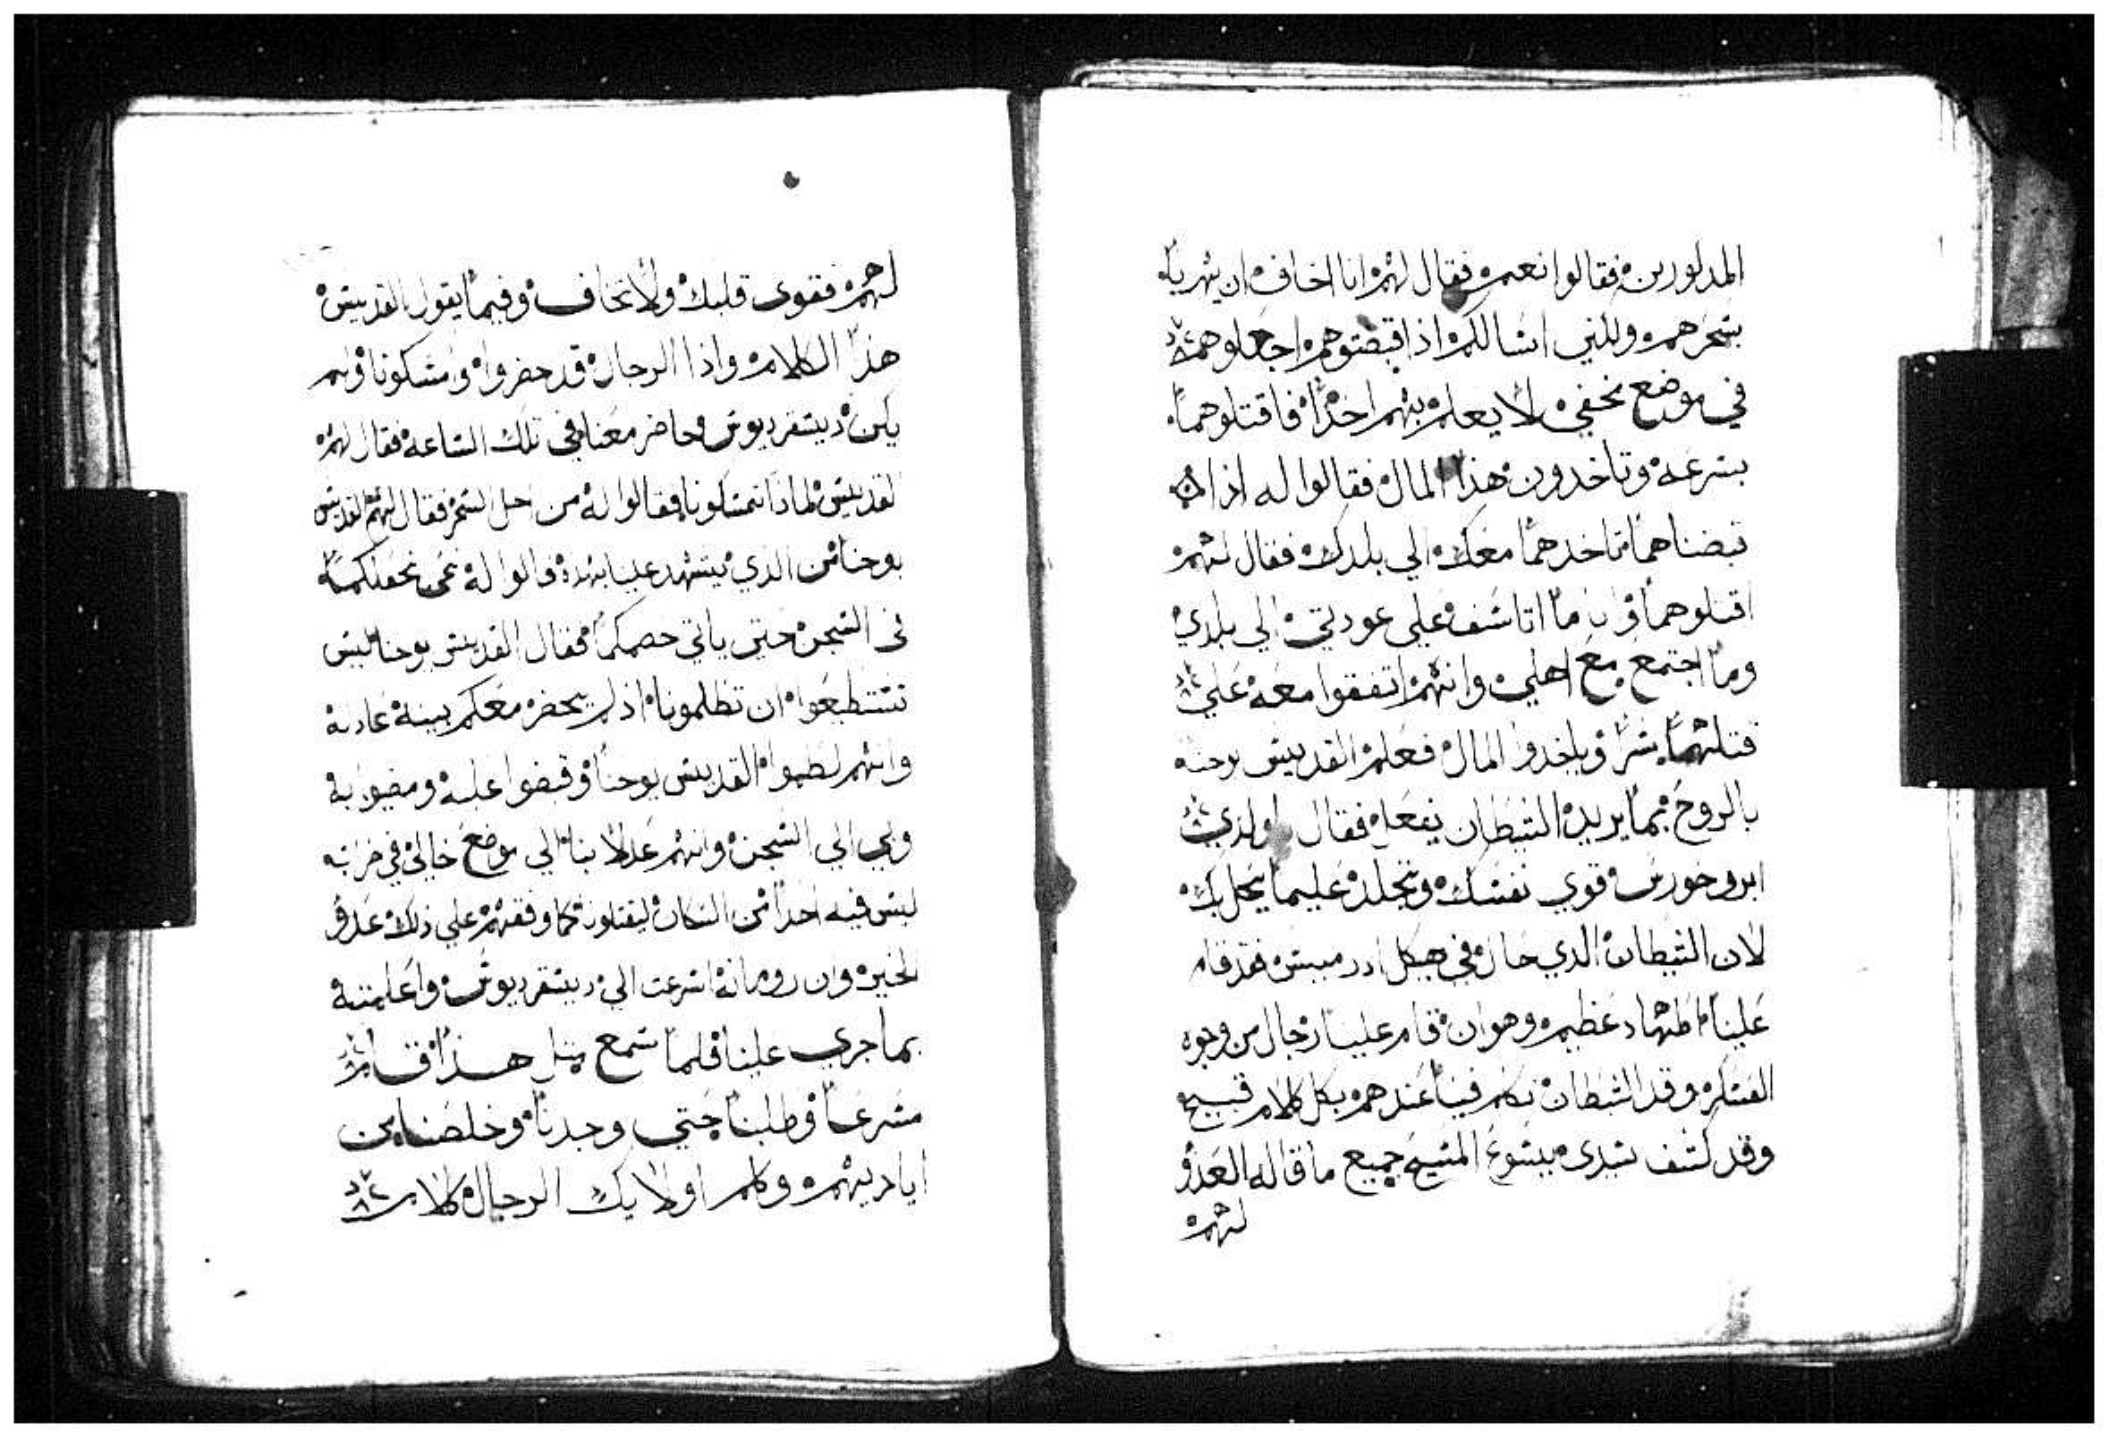 المدكورين فقالوا نعم فقال لهم انا اخاف ان يهربا
بسحرهم ولكني اسالكم اذا قبضتوهم اجعلوهم
في موضع مخفي لا يعلم بهم احدا فاقتلوهما
بسرعه وتاخدون هذا المال فقالوا له اذا
قبضناهما تاخدهما معك الي بلدك فقال لهم
اقتلوهما وانا ما اتاسف علي عودتي الي بلدي
وما اجتمع مع اهلي وانهم اتفقوا معه علي
قتلهما سرا وياخدوا المال فعلم القديس يوحنا
بالروح بما يريد الشيطان يفعله فقال ولدي
ابروخورس قوي نفسك وتجلد عليما يحل بك
لان الشيطان الدي حال في هيكل ارميس فقد قام
علينا اظطهاد عظيم وهو ان قام علينا رجال من وجوه
العسكر وقد الشيطان تكلم فينا عندهم بكل كلام قبيح
وقد كشف سيدي يسوع المسيح جميع ما قاله العدو
لهم
لهم فقوي قلبك ولا تخاف وفيما يقول القديس
هذا الكلام واذا الرجال قد حضروا ومسكونا ولم
يكن ديسقرديوس حاضر معنا في تلك الساعه فقال لهم
لقديس لماذا تمسكونا فقالوا له من اجل السحر فقال لهم القديس
يوحنا من الذي يشهد علينا بهذه قالوا له نحن نجعلكما
في السجن حتي ياتي خصمكما فقال القديس يوحنا ليس
تستطيعوا ان تظلمونا اذ لم يحضر معكم بينه عادله
وانهم لطموا القديس يوحنا وقبضوا عليه ومضوا به
وبي الي السجن وانهم عدلوا بنا الي موضع خالي في خرابه
ليس فيه احدا من السكان ليقتلونا كما وفقهم علي ذلك عدو
الخير وان رومانه اسرعت الي ديسقرديوس واعلمته
بما جري علينا فلما سمع مثل هذا قام
مسرعا وطلبنا حتي وجدنا وخلصنا من
اياديهم وكلم اولايك الرجال كلام